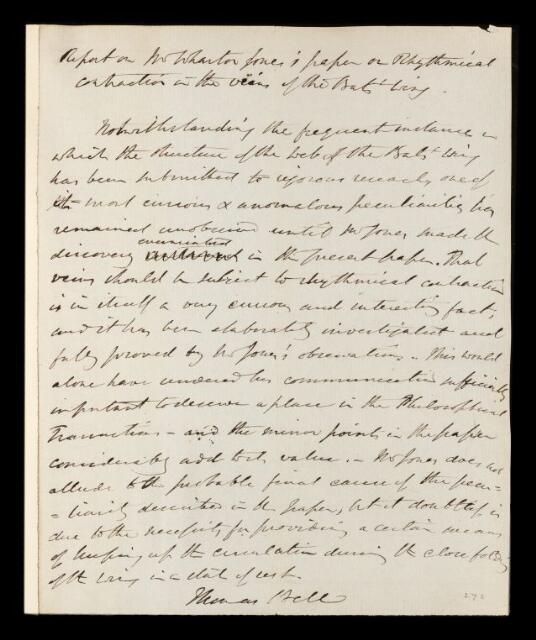 Report on Mr Wharton Jones's paper on Rhythmical
contraction in the veins of the Bats' Wing.
Notwithstanding the frequent instances in
which the structure of the web of the Bats' Wing
has been submitted to rigorous research one of
its most curious & anomalous peculiarities has
remained unobserved until Mr Jones made the
discovery enunciated in the present paper. That
veins should be subject to rhythmical contraction
is in itself a very curious and interesting fact,
and it has been elaborately investigated and
fully proved by Mr Jones's observations. This would
alone have rendered his communication sufficiently
important to deserve a place in the Philosophical
Transactions – and the minor points in the paper
considerably add to its value. – Mr Jones does not
allude to the probable final cause of the pecu-
-liarity described in the paper, but it doubtless is
due to the necessity for providing a certain means
of keeping up the circulation during the close folding
of the wing in a state of rest.
Thomas Bell
272